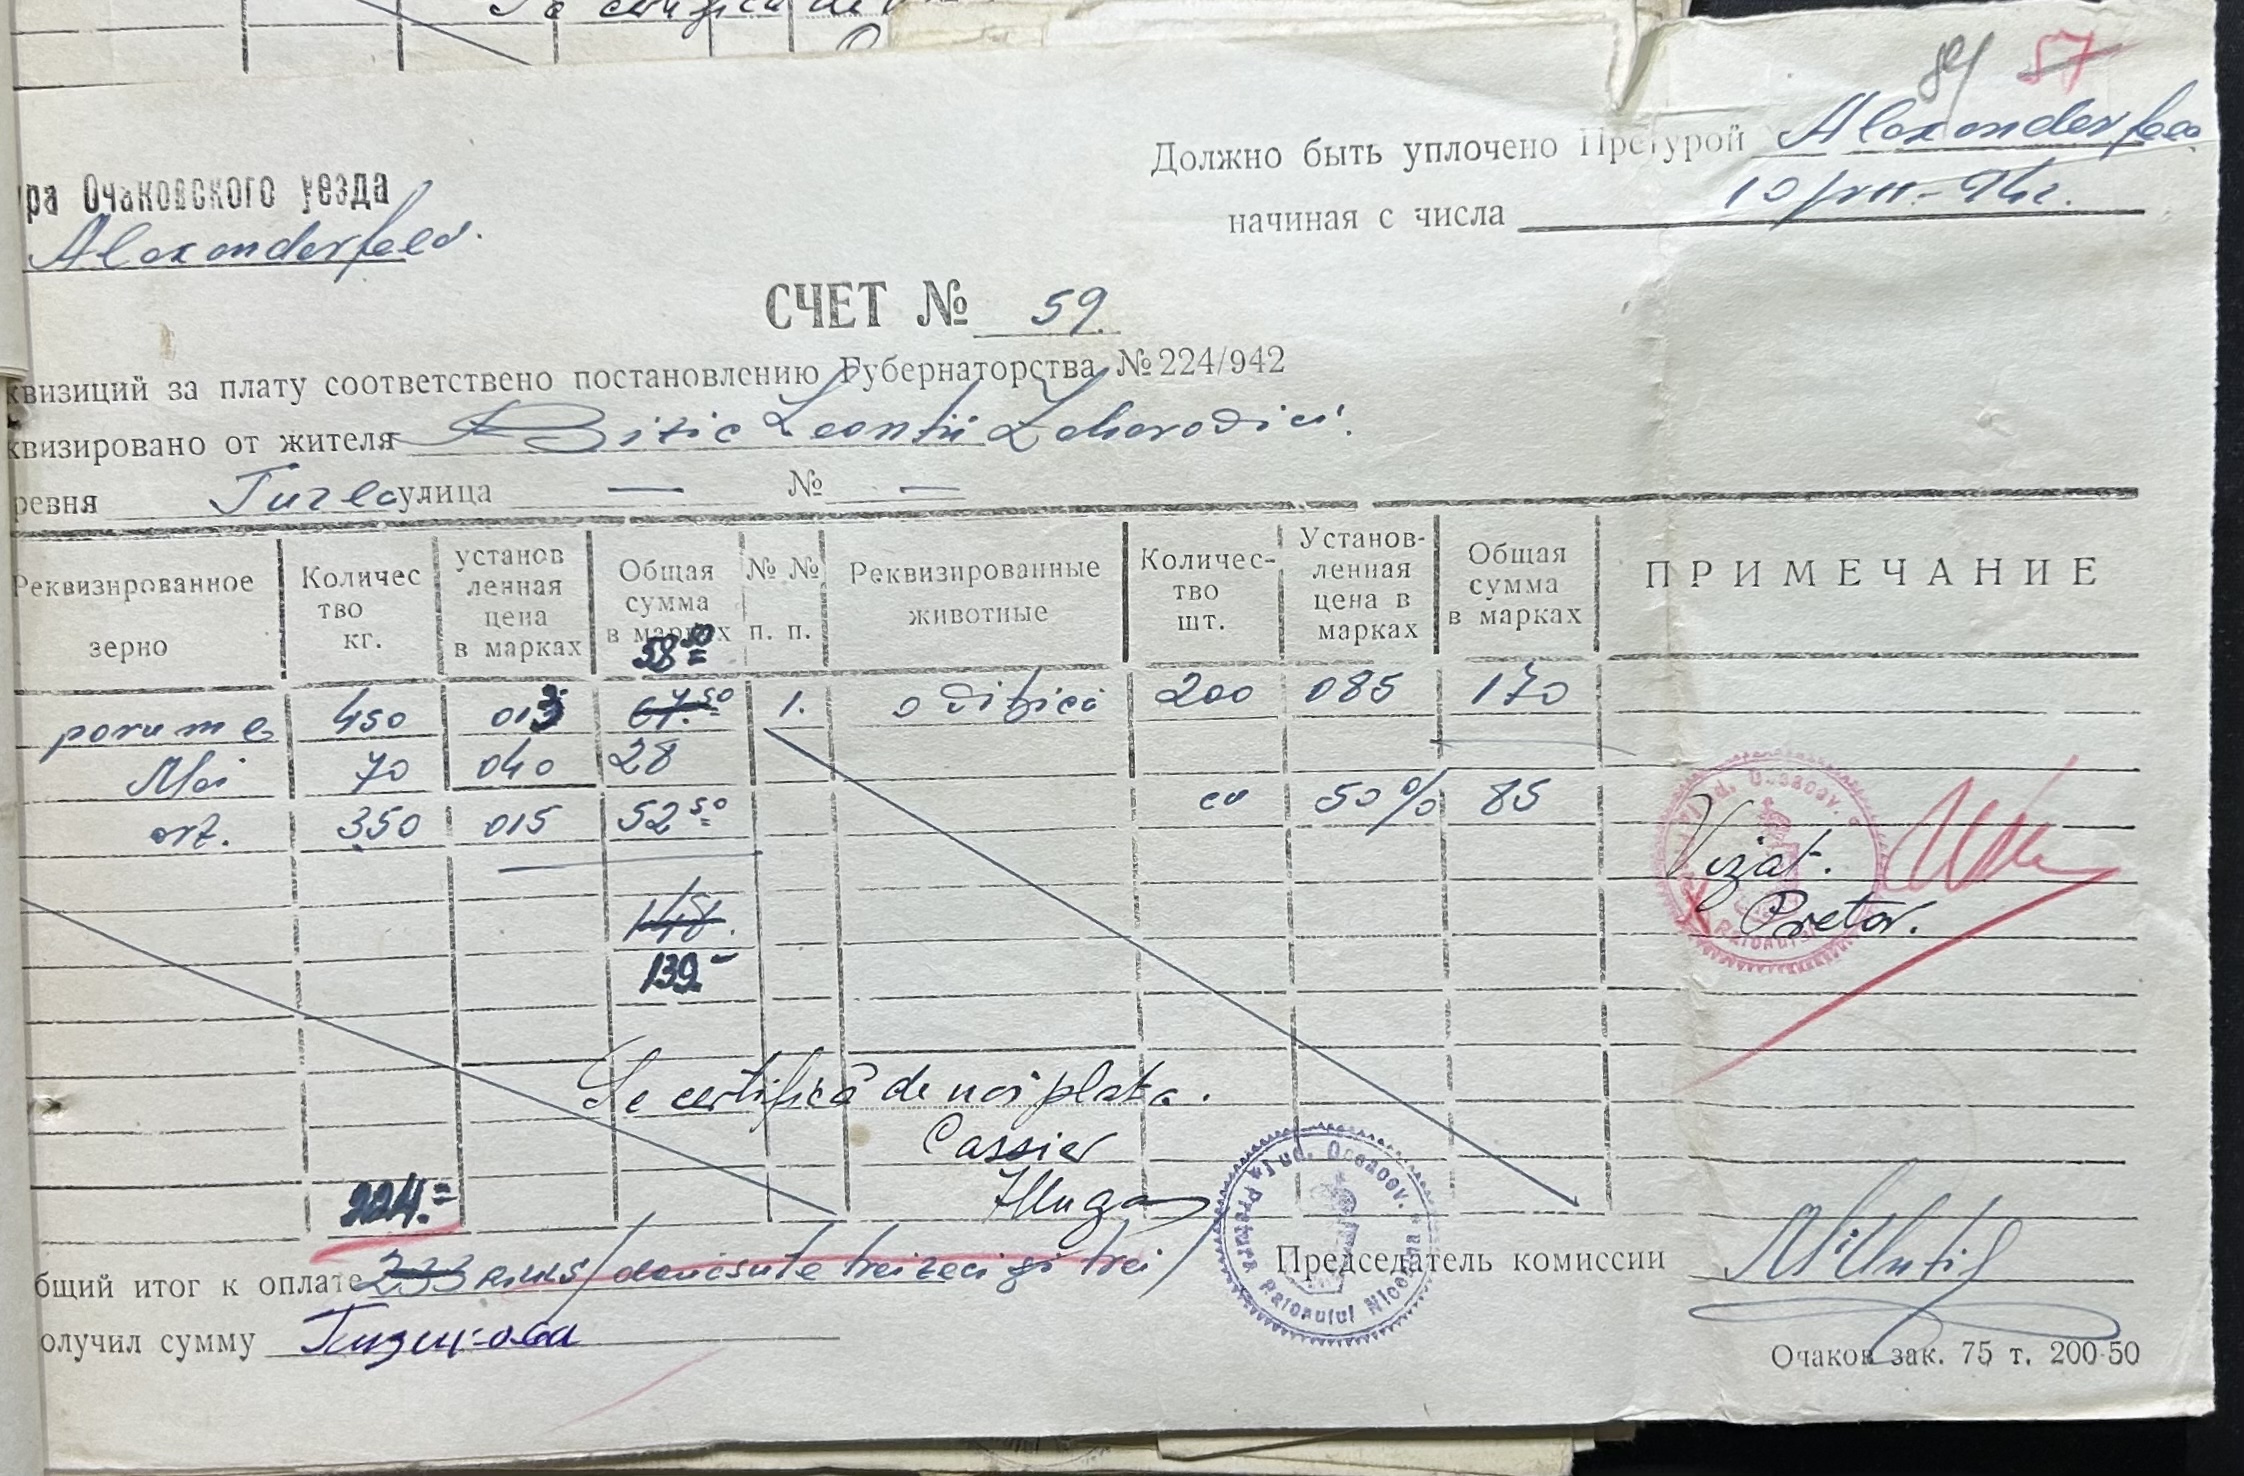 84 57
Должно быть уплочено Претурой Alexanderfeld
ра Очаковского уезда
начиная с числа
Alexanderfeld.
СЧЕТ № 59.
квизиций за плату соответствено постановлению Губернаторства №224/942
квизировано от жителя Leontii
ревня улица — № —
Реквизированное зерно Количес тво кг. установ ленная цена в марках Общая сумма в марках №№ п. п. Реквизированные животные Количес- тво шт. Установ- ленная цена в марках Общая сумма в марках ПРИМЕЧАНИЕ
58 50
porumb 450 013 67.50 1. o 200 085 170
Mei 70 040 28
orz. 350 015 52 50 cu 50% 85
Vizat.
Pretor.
148.
139.-
Se certifică de noi plata.
Cassier
224.=
бщий итог к оплате 233 RKKS/douăsute treizeci și trei/ Председатель комиссии
олучил сумму
Jud. Oceacov. Pretura Raionului
Очаков зак. 75 т. 200-50